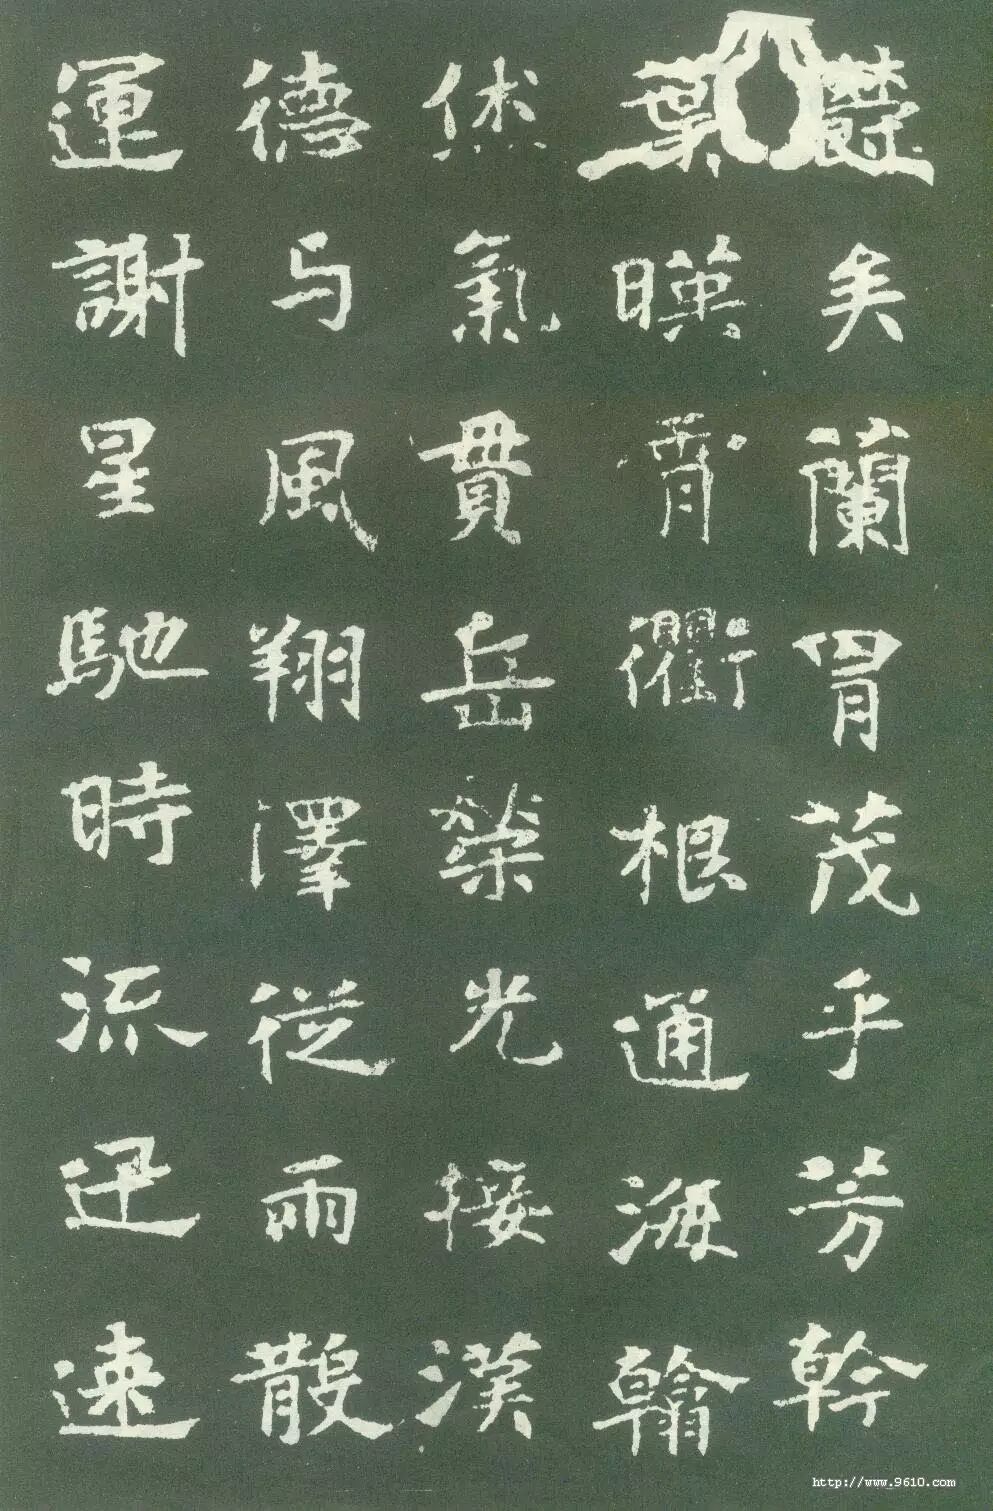 鬱矣蘭胄茂乎芳幹
葉暎霄衢根通海翰
烋氣貫岳榮光接漢
德与風翔澤從雨散
運謝星馳時流迅速
http://www.9610.com